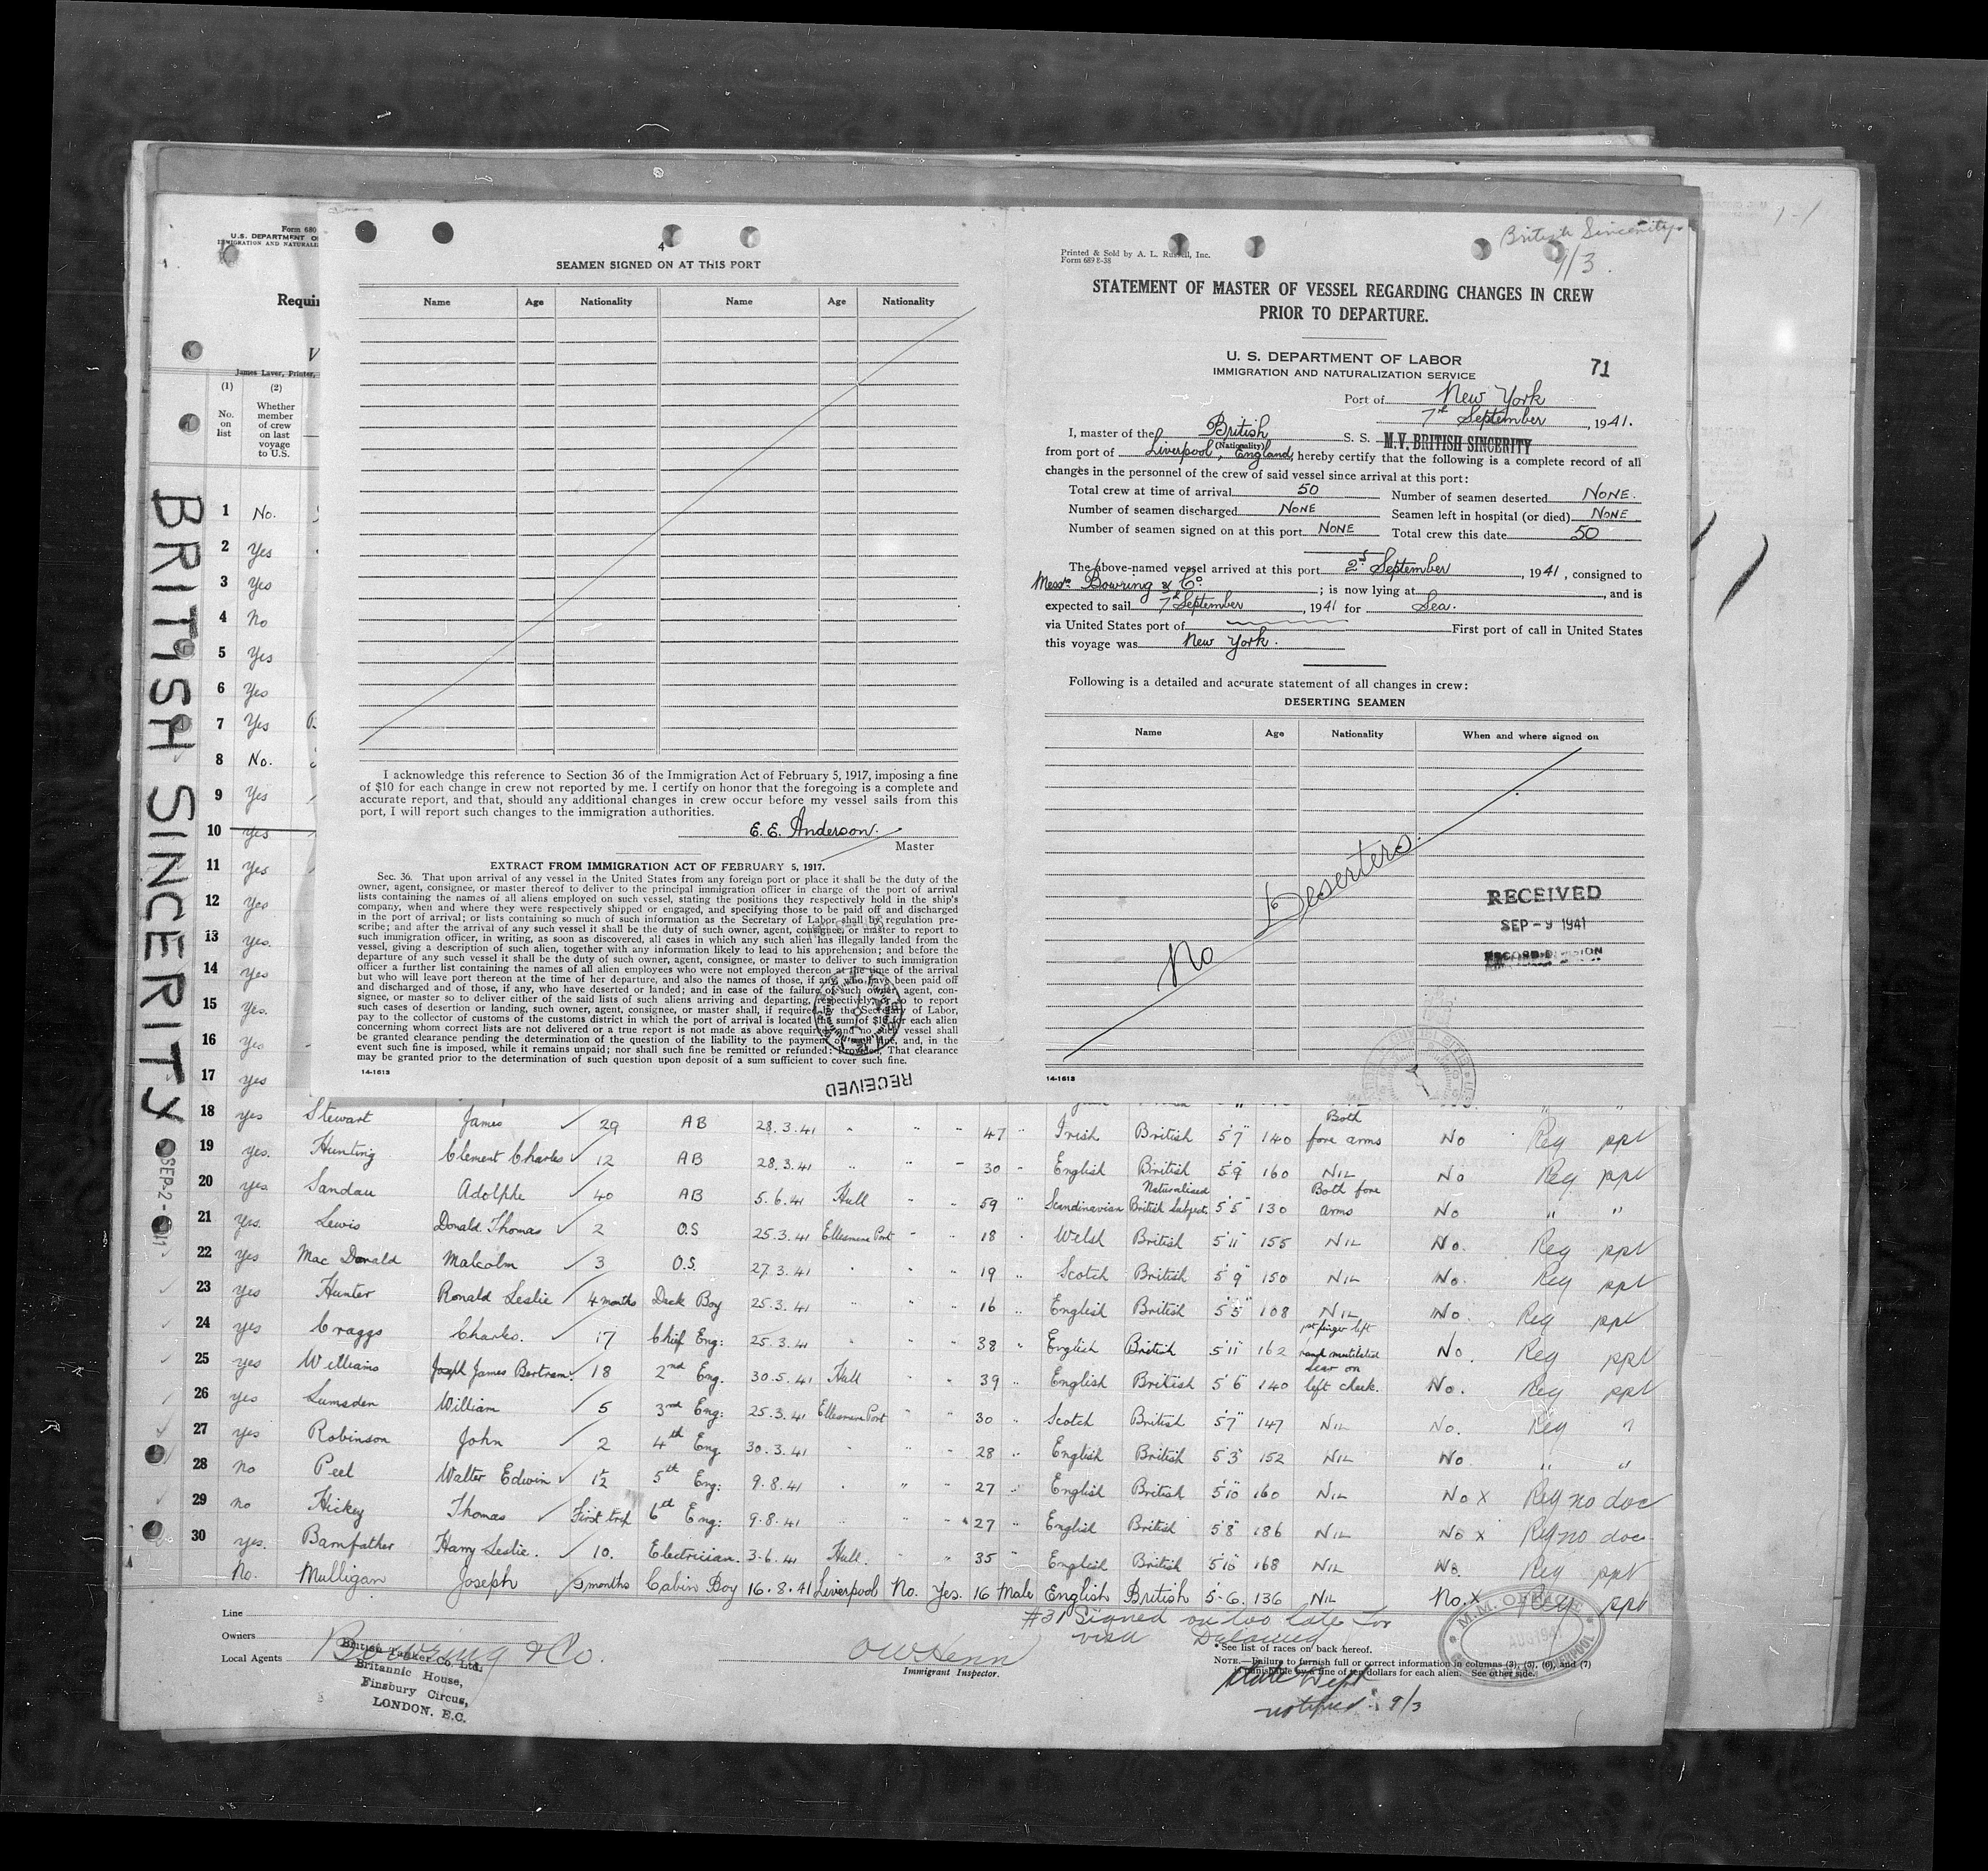 Form 680
U.S. DEPARTMENT O
IMMIGRATION AND NATURALI
Requir
V
James Laver, Printer,
(1) (2)
No. on list
Whether member of crew on last voyage to U.S.
BRITISH SINCERITY
SEP-2-
1 No.
2 Yes
3 Yes
4 No
5 Yes
6 Yes
7 Yes
8 No.
9 Yes
10 Yes
11 Yes
12 Yes
13 Yes.
14 Yes
15 Yes.
16 Yes
17 Yes
4
SEAMEN SIGNED ON AT THIS PORT
Name Age Nationality Name Age Nationality
I acknowledge this reference to Section 36 of the Immigration Act of February 5, 1917, imposing a fine
of $10 for each change in crew not reported by me. I certify on honor that the foregoing is a complete and
accurate report, and that, should any additional changes in crew occur before my vessel sails from this
port, I will report such changes to the immigration authorities.
E. E. Anderson.
Master
EXTRACT FROM IMMIGRATION ACT OF FEBRUARY 5, 1917.
Sec. 36. That upon arrival of any vessel in the United States from any foreign port or place it shall be the duty of the
owner, agent, consignee, or master thereof to deliver to the principal immigration officer in charge of the port of arrival
lists containing the names of all aliens employed on such vessel, stating the positions they respectively hold in the ship's
company, when and where they were respectively shipped or engaged, and specifying those to be paid off and discharged
in the port of arrival; or lists containing so much of such information as the Secretary of Labor shall by regulation pre-
scribe; and after the arrival of any such vessel it shall be the duty of such owner, agent, consignee, or master to report to
such immigration officer, in writing, as soon as discovered, all cases in which any such alien has illegally landed from the
vessel, giving a description of such alien, together with any information likely to lead to his apprehension; and before the
departure of any such vessel it shall be the duty of such owner, agent, consignee, or master to deliver to such immigration
officer a further list containing the names of all alien employees who were not employed thereon at the time of the arrival
but who will leave port thereon at the time of her departure, and also the names of those, if any, who have been paid off
and discharged and of those, if any, who have deserted or landed; and in case of the failure of such owner, agent, con-
signee, or master so to deliver either of the said lists of such aliens arriving and departing, respectively, or so to report
such cases of desertion or landing, such owner, agent, consignee, or master shall, if required by the Secretary of Labor,
pay to the collector of customs of the customs district in which the port of arrival is located the sum of $10 for each alien
concerning whom correct lists are not delivered or a true report is not made as above required; and no such vessel shall
be granted clearance pending the determination of the question of the liability to the payment of such fine, and, in the
event such fine is imposed, while it remains unpaid; nor shall such fine be remitted or refunded: Provided, That clearance
may be granted prior to the determination of such question upon deposit of a sum sufficient to cover such fine.
14-1613
RECEIVED
British Sincerity
9/3.
Printed & Sold by A. L. Russell, Inc.
Form 689 E-38
STATEMENT OF MASTER OF VESSEL REGARDING CHANGES IN CREW
PRIOR TO DEPARTURE.
U. S. DEPARTMENT OF LABOR
IMMIGRATION AND NATURALIZATION SERVICE
71
Port of New York
7th September, 1941.
I, master of the British S. S. M.V. BRITISH SINCERITY
(Nationality)
from port of Liverpool, England, hereby certify that the following is a complete record of all
changes in the personnel of the crew of said vessel since arrival at this port:
Total crew at time of arrival 50 Number of seamen deserted NONE.
Number of seamen discharged NONE Seamen left in hospital (or died) NONE
Number of seamen signed on at this port NONE Total crew this date 50
The above-named vessel arrived at this port 2nd September, 1941, consigned to
Messrs. Bowring & Co. ; is now lying at , and is
expected to sail 7th September, 1941 for Sea.
via United States port of First port of call in United States
this voyage was New York.
Following is a detailed and accurate statement of all changes in crew:
DESERTING SEAMEN
Name Age Nationality When and where signed on
No Deserters.
RECEIVED
SEP - 9 1941
RECORD DIVISION
14-1613
1-1
18 yes Stewart James 29 AB 28.3.41 " " " 47 " Irish British 5'7" 140 Both fore arms No Reg ppt
19 yes. Hunting Clement Charles 12 AB 28.3.41 " " " 30 " English British 5'9" 160 NIL No Reg ppt
20 yes. Sandau Adolphe 40 AB 5.6.41 Hull " " 59 " Scandinavian Naturalised British Subject. 5'5" 130 Both fore arms No " "
21 yes. Lewis Donald Thomas 2 O.S 25.3.41 Ellesmere Port " " 18 " Welsh British 5'11" 155 NIL No. Reg ppt
22 yes Mac Donald Malcolm 3 O.S. 27.3.41 " " " 19 " Scotch British 5'9" 150 NIL No. Reg ppt
23 yes Hunter Ronald Leslie 4 months Deck Boy 25.3.41 " " " 16 " English British 5'5" 108 NIL No. Reg ppt
24 yes Craggs Charles. 17 Chief Eng: 25.3.41 " " " 38 " English British 5'11" 162 1st finger left hand mutilated No. Reg ppt
25 yes Williams Joseph James Bertram. 18 2nd Eng. 30.5.41 Hull " " 39 " English British 5'6" 140 scar on left cheek. No. Reg ppt
26 yes Lumsden William 5 3rd Eng: 25.3.41 Ellesmere Port " " 30 " Scotch British 5'7" 147 NIL No. Reg "
27 yes Robinson John 2 4th Eng 30.3.41 " " " 28 " English British 5'3" 152 NIL No " "
28 no Peel Walter Edwin 1½ 5th Eng: 9.8.41 " " " 27 " English British 5'10" 160 NIL No X Reg no doc
29 no Hickey Thomas First trip 6th Eng: 9.8.41 " " " 27 " English British 5'8" 186 NIL No X Reg no doc.
30 yes. Bamfather Harry Leslie. 10. Electrician. 3.6.41 Hull. " " 35 " English British 5'10" 168 NIL No. Reg ppt
No. Mulligan Joseph 9 months Cabin Boy 16.8.41 Liverpool No. Yes. 16 Male English British 5-6. 136 NIL No. X Reg ppt
#31 Signed on too late for
visa
Line
Owners
Local Agents Bowring & Co.
British Tanker Co. Ltd.
Britannic House,
Finsbury Circus,
LONDON, E.C.
OWHenn
Immigrant Inspector.
* See list of races on back hereof.
NOTE.—Failure to furnish full or correct information in columns (3), (5), (6), and (7)
is punishable by a fine of ten dollars for each alien. See other side.
State Dept
notified 9/3
M.M. OFFICE
AUG 1941
LIVERPOOL